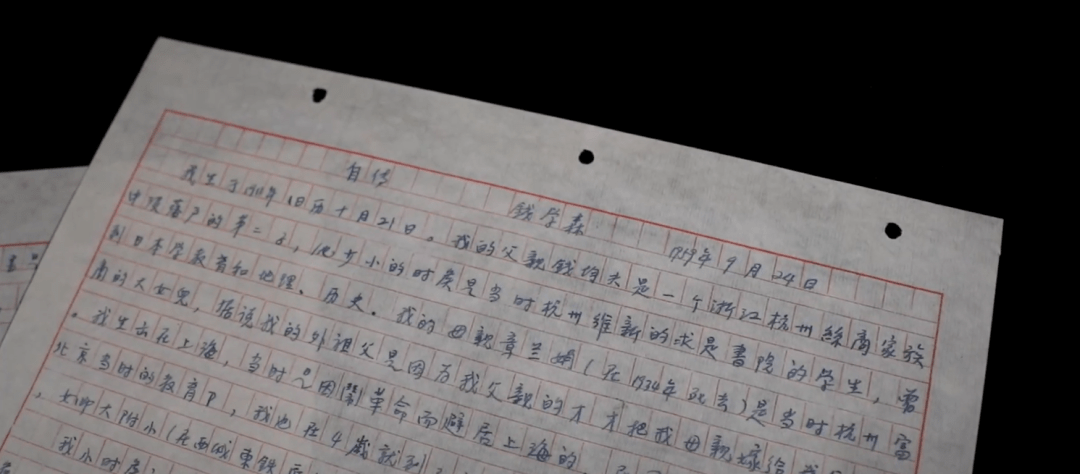 自传
钱学森
1959年9月24日
我生于1910年旧历十月21日。我的父亲钱均夫是一个浙江杭州丝商家族
中没落户的第二子，他少小的时候是当时杭州维新的求是書院的学生，曾
到日本学教育和地理、历史。我的母親章兰娟（在1934年死去）是当时杭州富
商的大女兒，据说我的外祖父是因为我父親的才才把我母親嫁给
。我生长在上海，当时是因鬧革命而避居上海的
北京当时的教育P，我也在4歲就到
，女师大附小（在西城東鉄
我小时